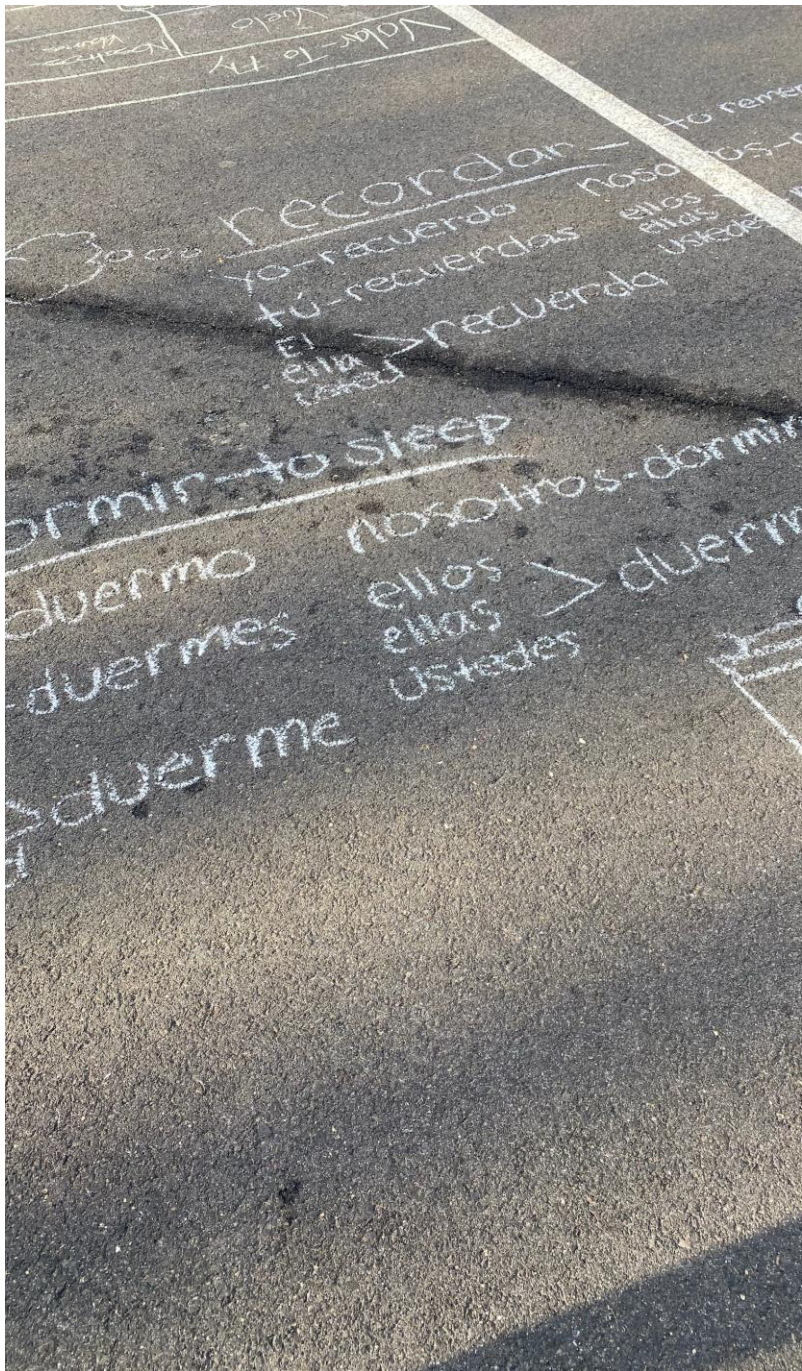 Volar-To Fly
Vuelo
Nosotros
recordar - to reme
yo-recuerdo
tú-recuerdas
El
ella
usted
>recuerda
ellos
ellas
ustede
ormir-to sleep
duermo
-duermes
>duerme
nosotros-dormir
ellos
ellas
ustedes
>duerm